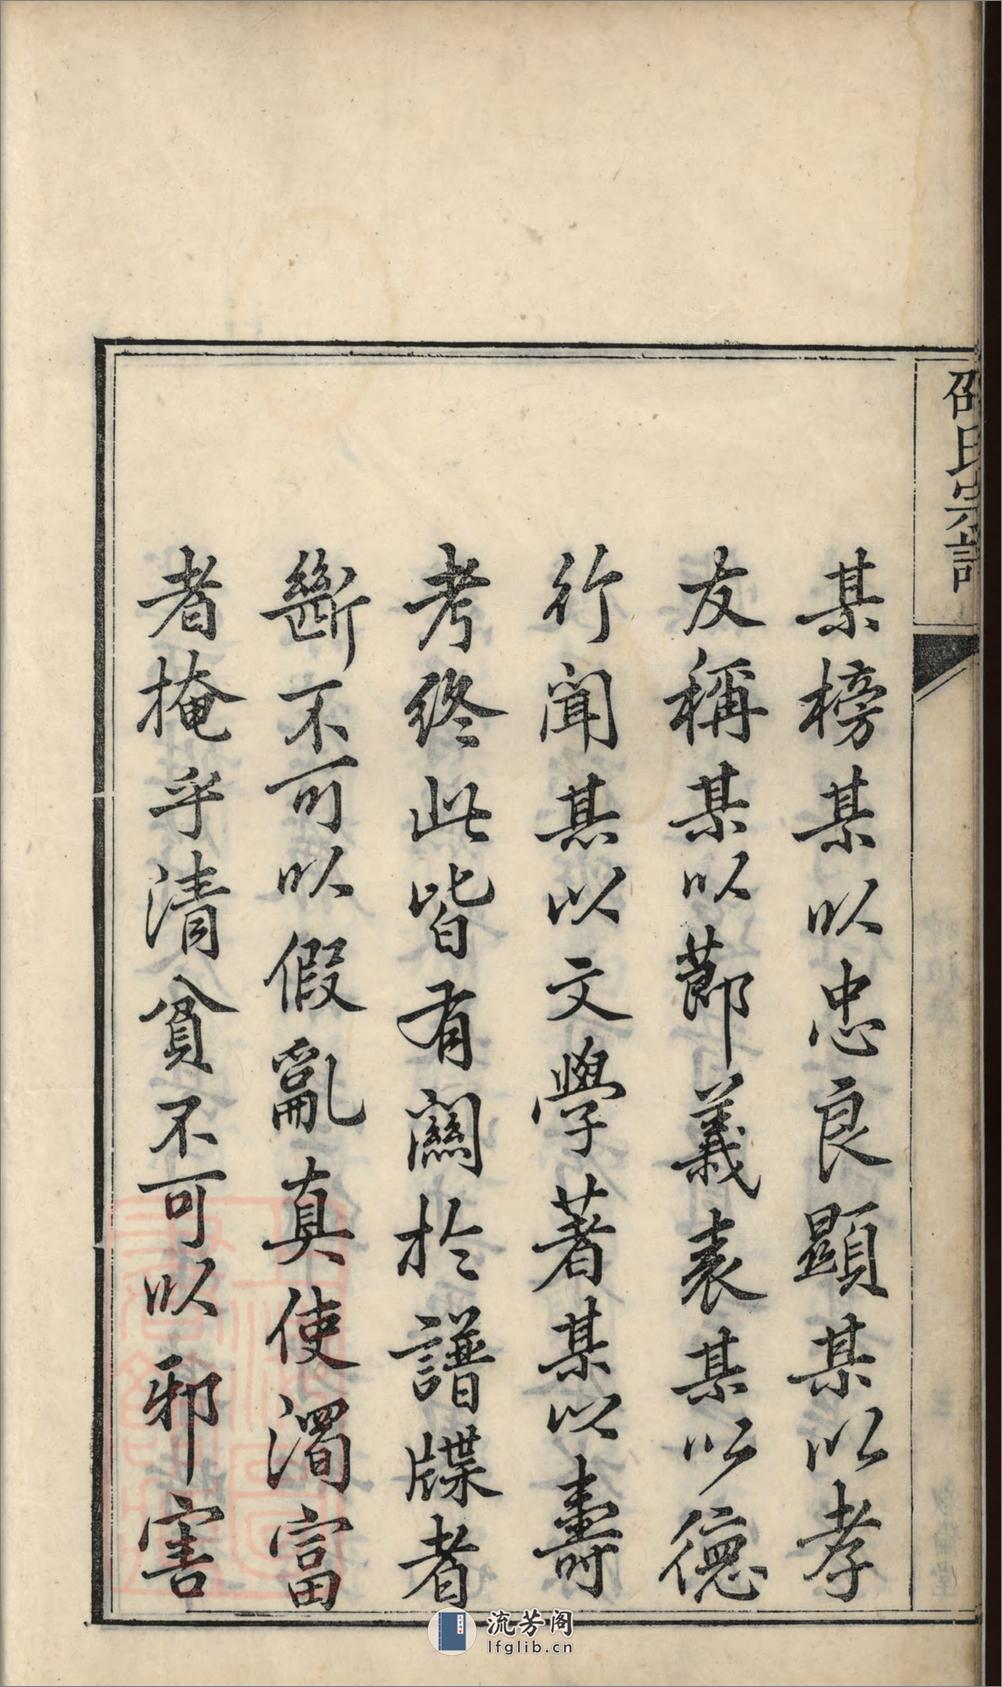 邵氏宗譜
某榜某以忠良顯某以孝
友稱某以莭義表某以德
行聞某以文學著某以壽
考終此皆有關於譜牒者
斷不可以假亂真使濁富
者掩乎清貧不可以邪害
流芳阁
lfglib.cn